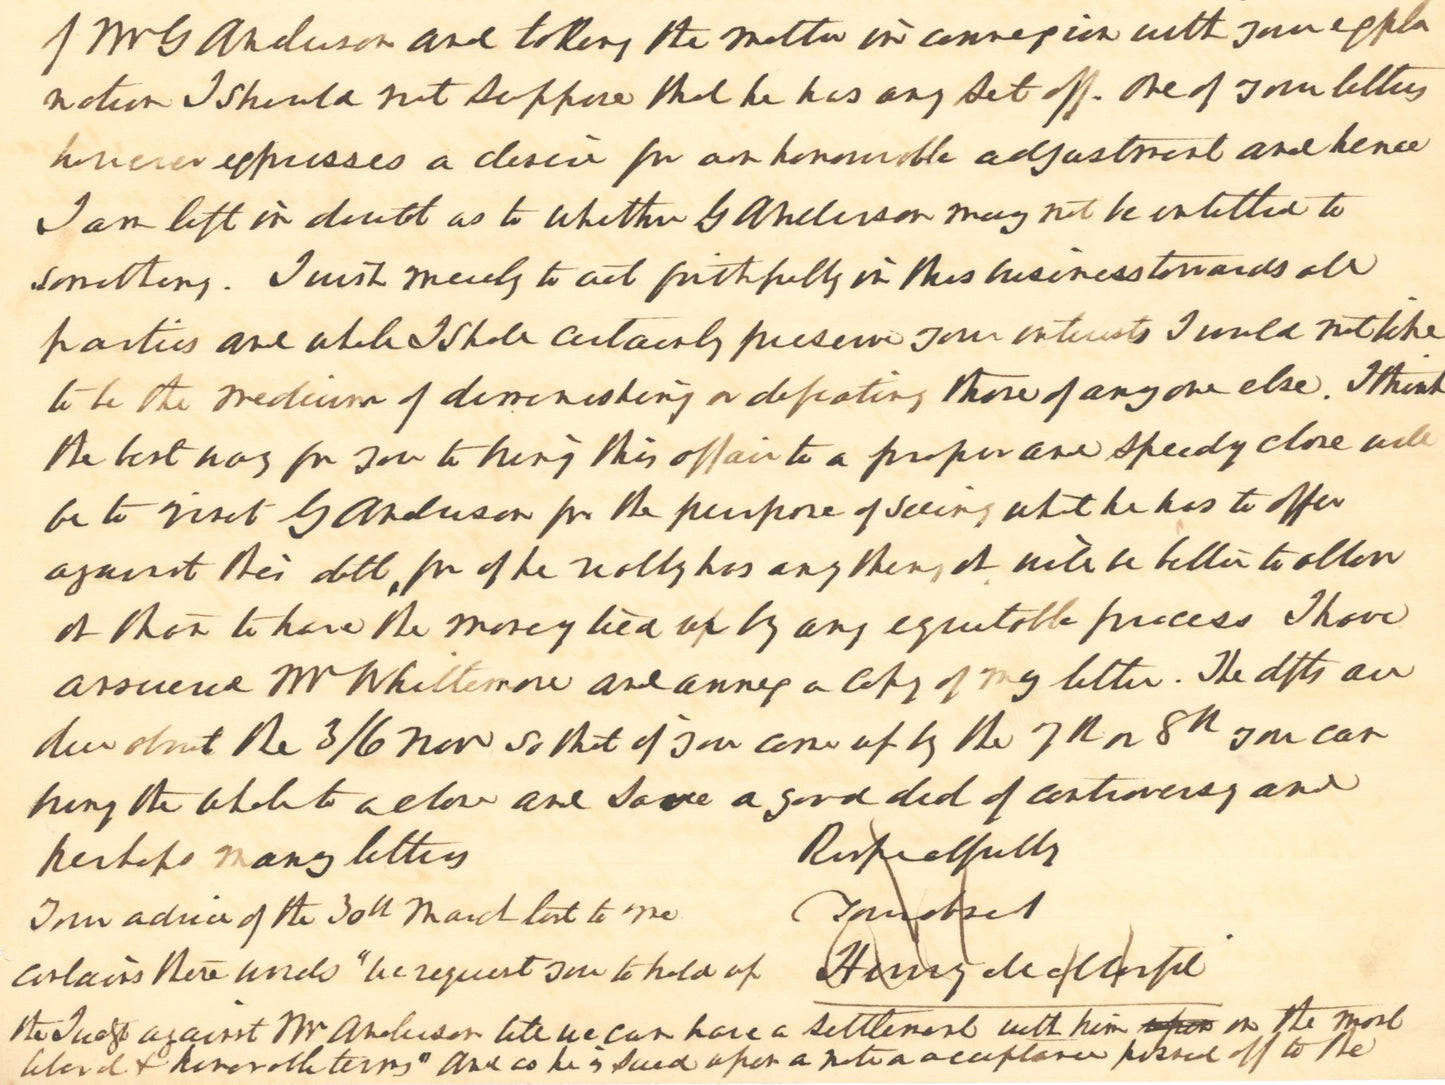 of Mr G Anderson and taking the matter in connexion with your expla
nation I should not suppose that he has any set off. One of your letters
however expresses a desire for an honourable adjustment and hence
I am left in doubt as to whether G Anderson may not be entitled to
something. I wish merely to act faithfully in this business towards all
parties and while I shall certainly preserve your interests I would not like
to be the medium of diminishing or defeating those of any one else. I think
the best way for you to bring this affair to a proper and speedy close will
be to visit G Anderson for the purpose of seeing what he has to offer
against this debt, for if he really has any thing it will be better to allow
it than to have the money tied up by any equitable process I have
answered Mr Whittemore and annex a copy of my letter. The dfts are
due about the 3/6 Nov so that if you come up by the 7th or 8th you can
bring the whole to a close and save a good deal of controversy and
perhaps many letters
Respectfully
Your obset
Henry
Your advice of the 30th March last to me
contains these words "we request you to hold up
the Judgt against Mr Anderson till we can have a settlement with him upon on the most
liberal & honorable terms" And as he is sued upon a note & acceptance passed off to the